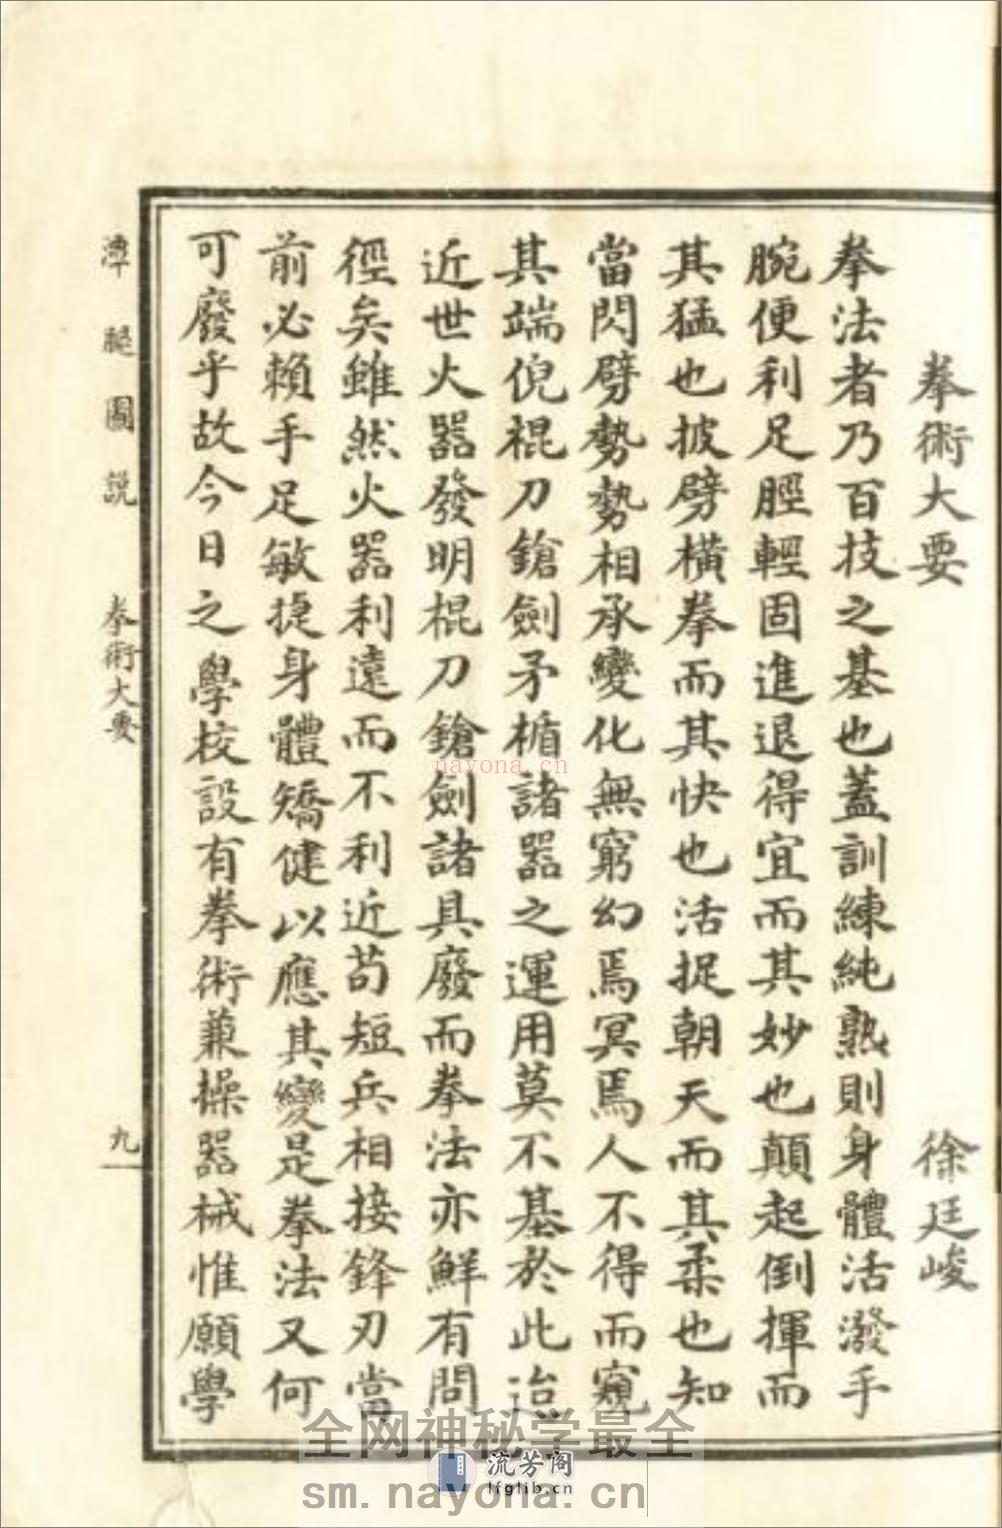 拳術大要 徐廷峻
拳法者乃百技之基也蓋訓練純熟則身體活潑手
腕便利足脛輕固進退得宜而其妙也顛起倒揮而
其猛也披劈橫拳而其快也活捉朝天而其柔也知
當閃劈勢勢相承變化無窮幻焉冥焉人不得而窺
其端倪棍刀鎗劍矛楯諸器之運用莫不基於此迨
近世火器發明棍刀鎗劍諸具廢而拳法亦鮮有問
徑矣雖然火器利遠而不利近苟短兵相接鋒刃當
前必賴手足敏捷身體矯健以應其變是拳法又何
可廢乎故今日之學校設有拳術兼操器械惟願學
潭腿圖說 拳術大要 九
nayona.cn
全网神秘学最全
流芳阁
lfglib.cn
sm.nayona.cn